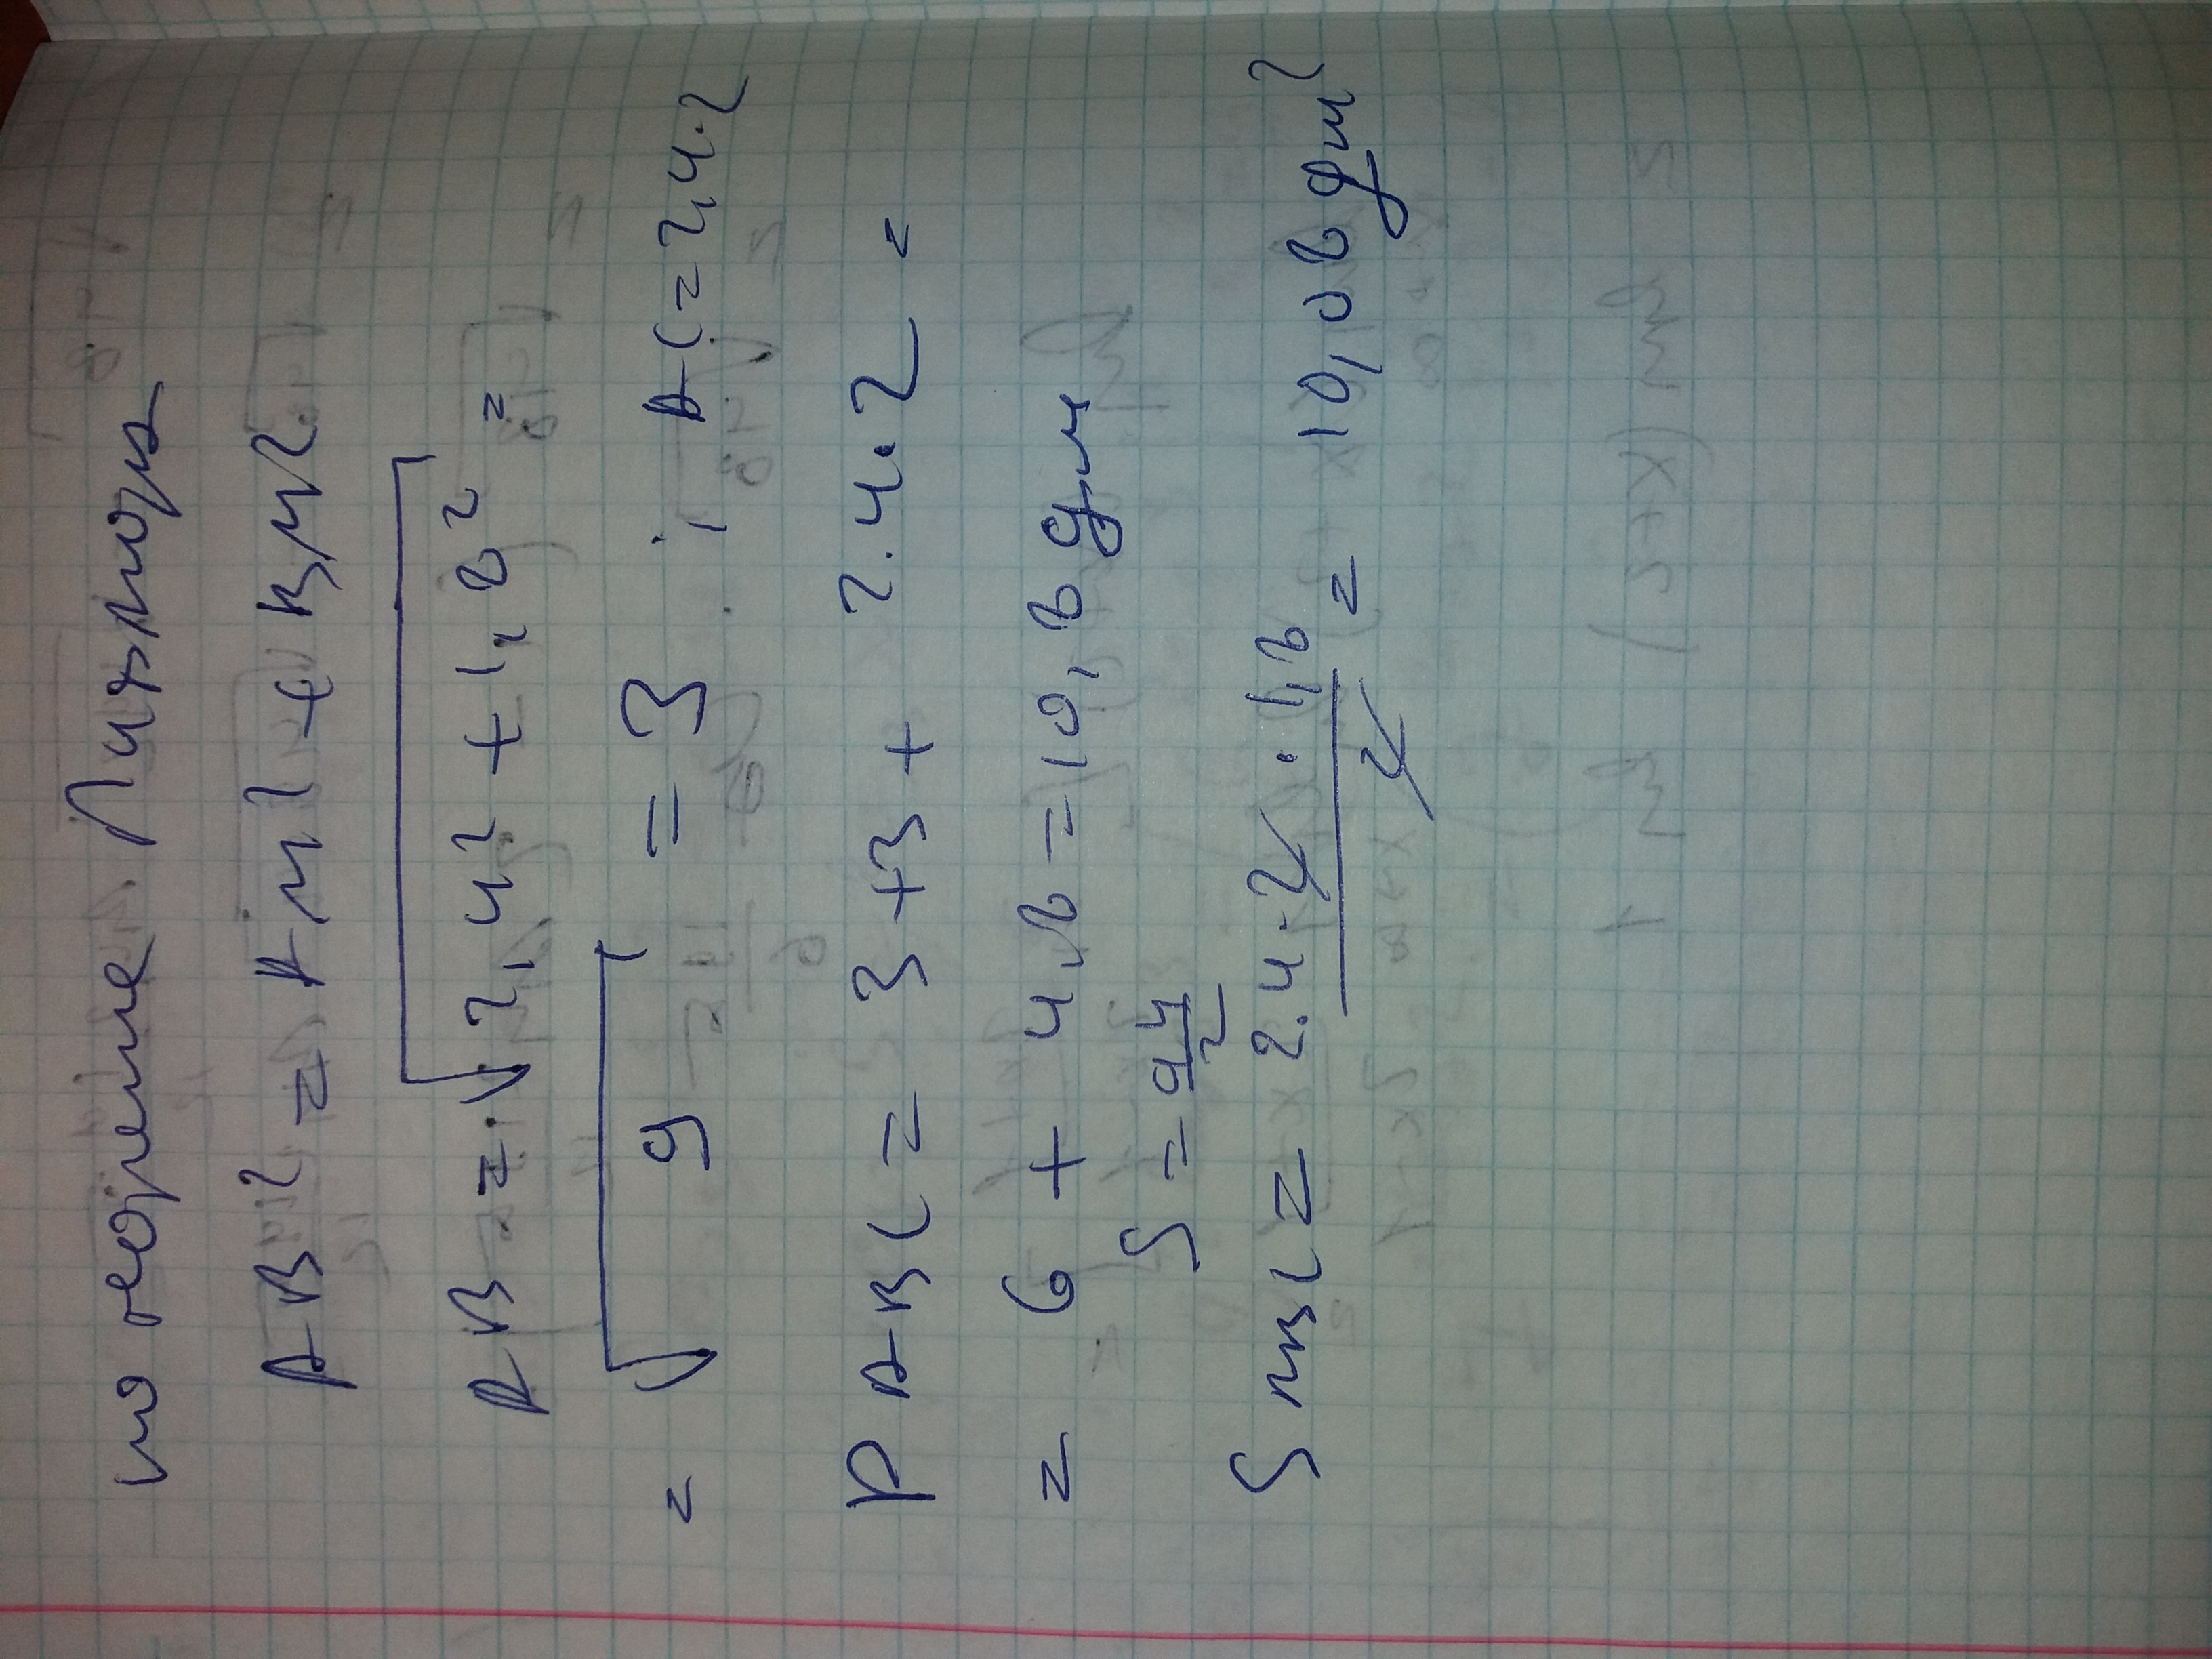 по теореме Пифагора
AB² = AM² + BM²
AB = √2,4² + 1,8² =
= √9 = 3 ; AC = 2,4·2
P ABC = 3 + 3 + 2.4·2 =
= 6 + 4,8 = 10,8 дм
S = a h / 2
S ABC = 2.4·2·1,8 / 2 = 10,08 дм²